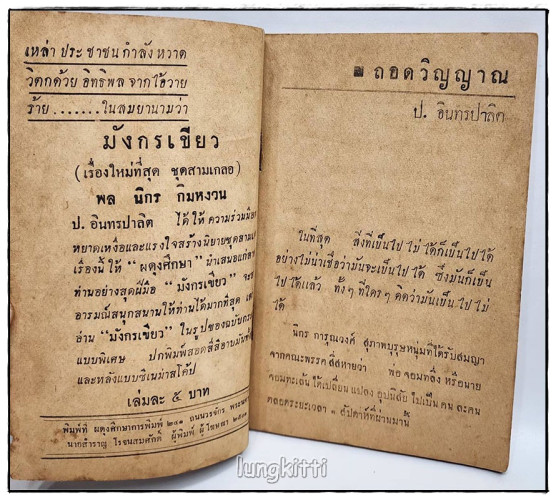 เหล่าประชาชนกำลังหวาด
วิตกด้วย อิทธิพล จากไอ้วาย
ร้าย.......ในสมยานามว่า
มังกรเขียว
(เรื่องใหม่ที่สุด ชุดสามเกลอ)
พล นิกร กิมหงวน
ป. อินทรปาลิต ได้ให้ ความร่วมมือ
หยาดเหงื่อและแรงใจสร้างนิยายชุดสาม
เรื่องนี้ให้ "ผดุงศึกษา" นำเสนอแก่
ท่านอย่างสุดฝีมือ "มังกรเขียว" จะ
อารมณ์สนุกสนานให้ท่านได้มากที่สุด
อ่าน "มังกรเขียว" ในรูปของฉบับ
แบบพิเศษ ปกพิมพ์สอดสี่สีอาบมัน
และหลังแบบซิเนม่าสโค๊ป
เล่มละ ๕ บาท
พิมพ์ที่ ผดุงศึกษาการพิมพ์ ๒๔๑ ถนนวรจักร
นายสำราญ ผู้พิมพ์ ผู้โฆษณา
ถอดวิญญาณ
ป. อินทรปาลิต
ในที่สุด สิ่งที่เป็นไปไม่ได้ก็เป็นไปได้
อย่างไม่น่าเชื่อว่ามันจะเป็นไปได้ ซึ่งมันก็เป็น
ไปได้แล้ว ทั้งๆ ที่ใครๆ คิดว่ามันเป็นไปไม่
ได้
นิกร การุณวงศ์ สุภาพบุรุษหนุ่มที่ได้รับสมญา
จากคณะพรรค สี่สหายว่า พ่อจอมทลึ่ง หรือนาย
จอมทะเล้น ได้เปลี่ยนแปลง อุปนิสัย ไปเป็น คน ละคน
ตลอดระยะเวลา ๑ สัปดาห์ที่ผ่านมานี้
lungkitti